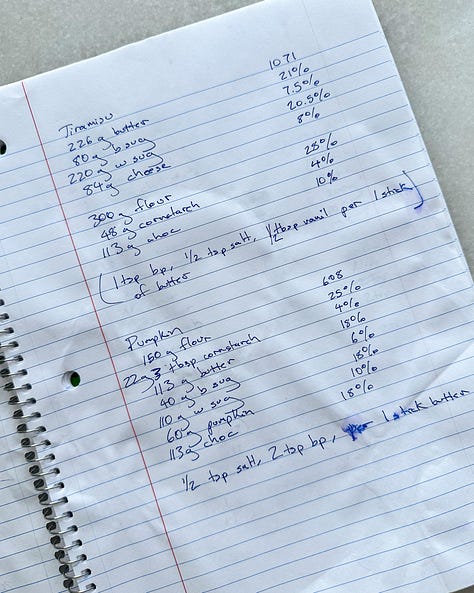 Tiramisu 1071
226g butter 21%
80g b sug 7.5%
220g w sug 20.5%
84g cheese 8%
300g flour 28%
48g cornstarch 4%
113g choc 10%
(1 tsp bp, 1/2 tsp salt, 1/2 tbsp vanil per 1 stick)
of butter
Pumpkin 608
150g flour 25%
22g 3 tbsp cornstarch 4%
113g butter 18%
40g b sug 6%
110g w sug 18%
60g pumpkin 10%
113g choc 18%
1/2 tsp salt, 2 tsp bp, per 1 stick butter